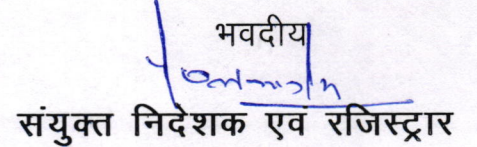 भवदीय
संयुक्त निदेशक एवं रजिस्ट्रार